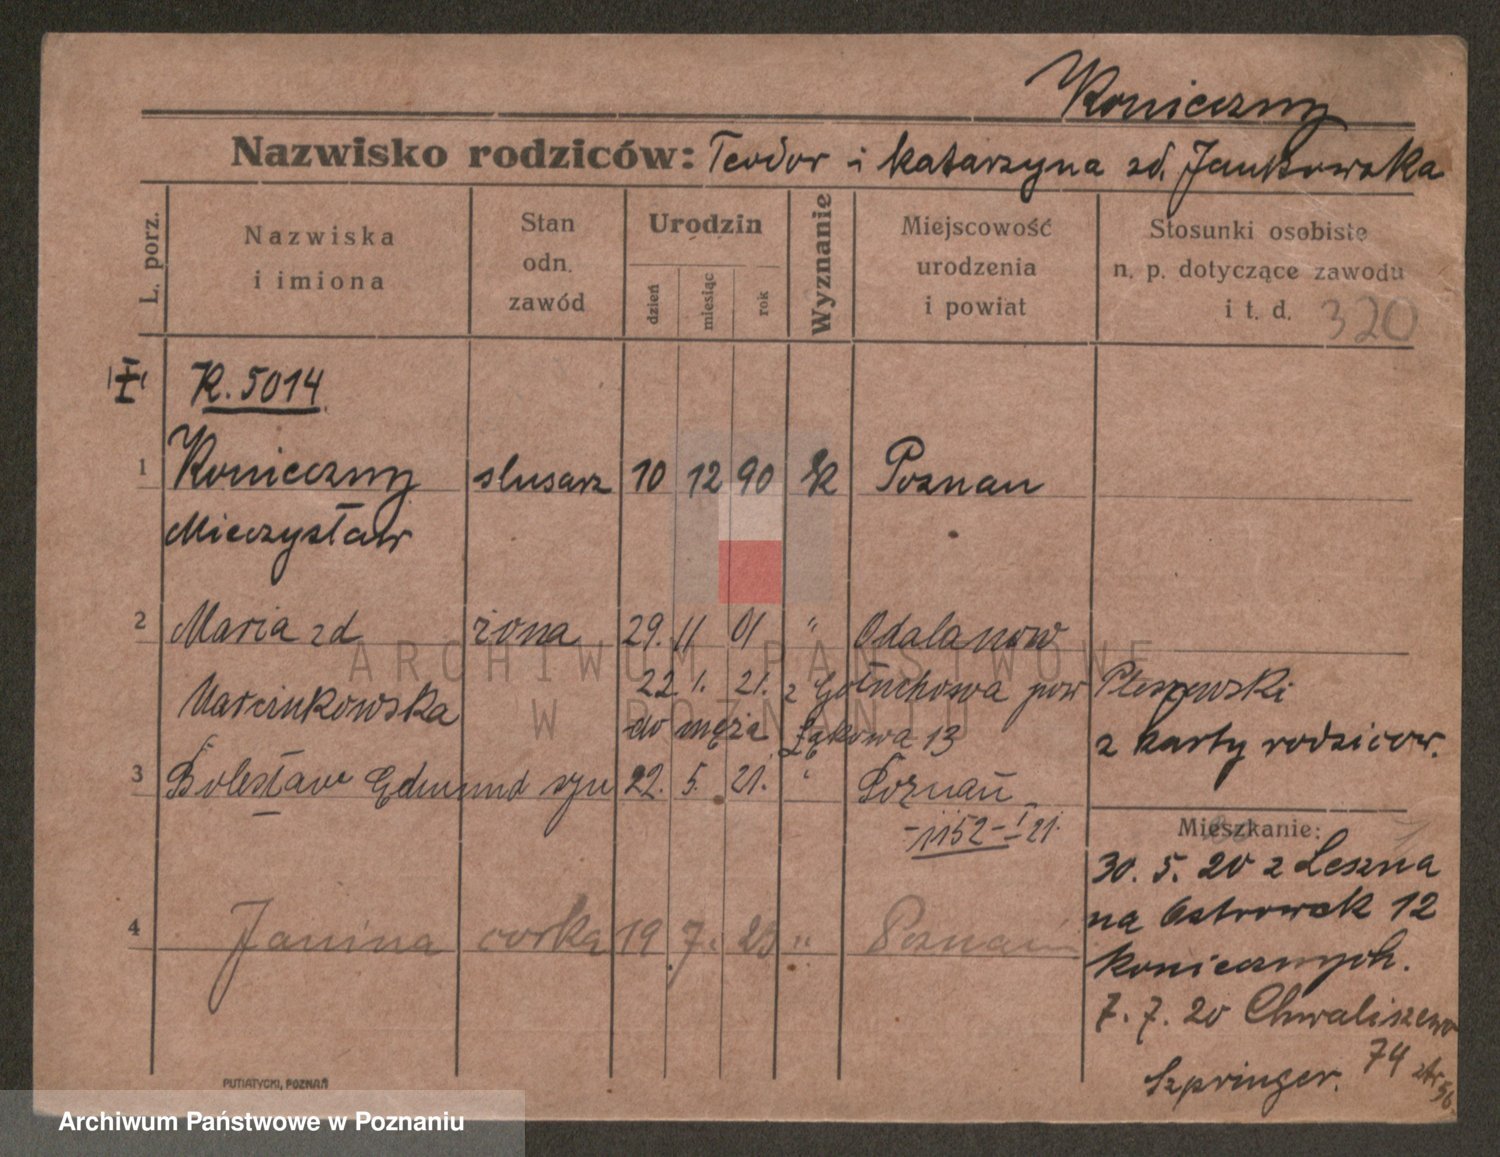 Konieczny
Nazwisko rodziców: Teodor i Katarzyna zd. Jankowska
L. porz.
Nazwiska
i imiona
Stan
odn.
zawód
Urodzin
dzień
miesiąc
rok
Wyznanie
Miejscowość
urodzenia
i powiat
Stosunki osobiste
n. p. dotyczące zawodu
i t. d. 320
I K. 5014
1 Konieczny slusarz 10 12 90 K Poznan
Mieczysław
2 Maria zd żona 29. 11 01 " Odalanow
Marcinkowska 22 1. 21. z Gołuchowa pow Pleszewski
do męża Łąkowa 13 z karty rodzicow.
3 Bolesław Edmund syn 22. 5. 21. " Poznań
-1152-I 21.
Mieszkanie:
30. 5. 20 z Leszna
na Ostrowek 12
koniecznych.
4 Janina corka 19 7. 23 " Poznań
7. 7. 20 Chwaliszewo
74
Szpringer.
PUTIATYCKI, POZNAŃ
ARCHIWUM PAŃSTWOWE
W POZNANIU
Archiwum Państwowe w Poznaniu